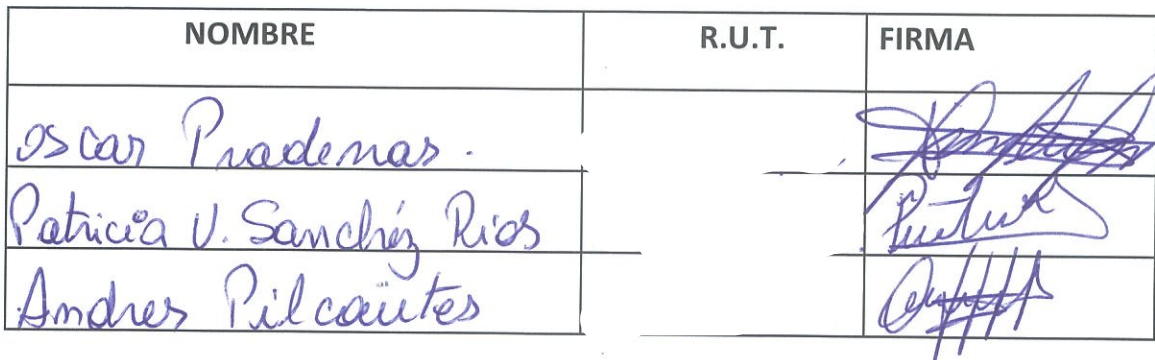 NOMBRE R.U.T. FIRMA
Oscar Pradenas.
Patricia V. Sanchéz Rios
Andres Pilcautes